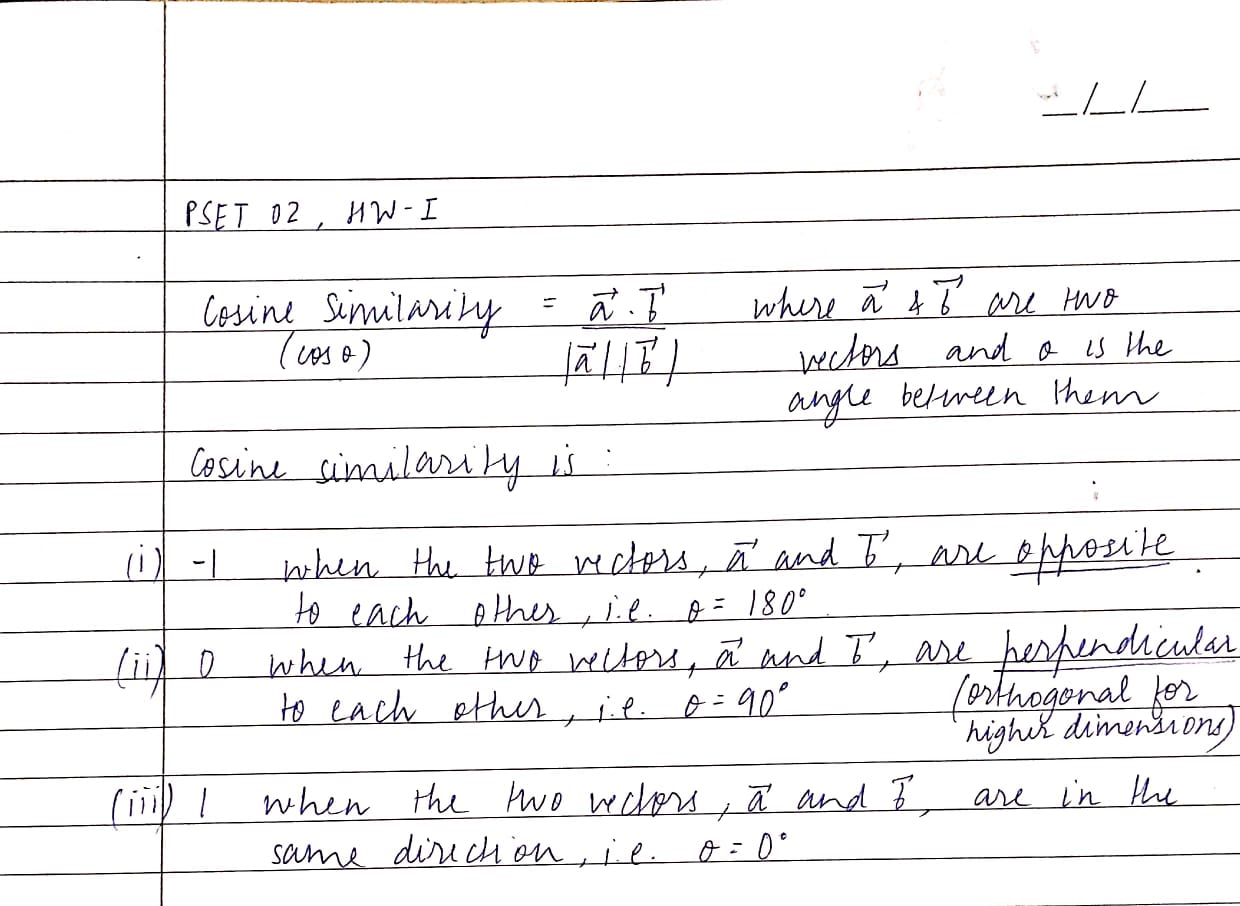 _/_/__
PSET 02, HW-I
Cosine Similarity = a⃗ . b⃗ where a⃗ & b⃗ are two
(cos θ) |a⃗| |b⃗| vectors and θ is the
angle between them
Cosine similarity is :
(i) -1 when the two vectors, a⃗ and b⃗, are opposite
to each other, i.e. θ = 180°
(ii) 0 when the two vectors, a⃗ and b⃗, are perpendicular
to each other, i.e. θ = 90° (orthogonal for
higher dimensions)
(iii) 1 when the two vectors, a⃗ and b⃗, are in the
same direction, i.e. θ = 0°